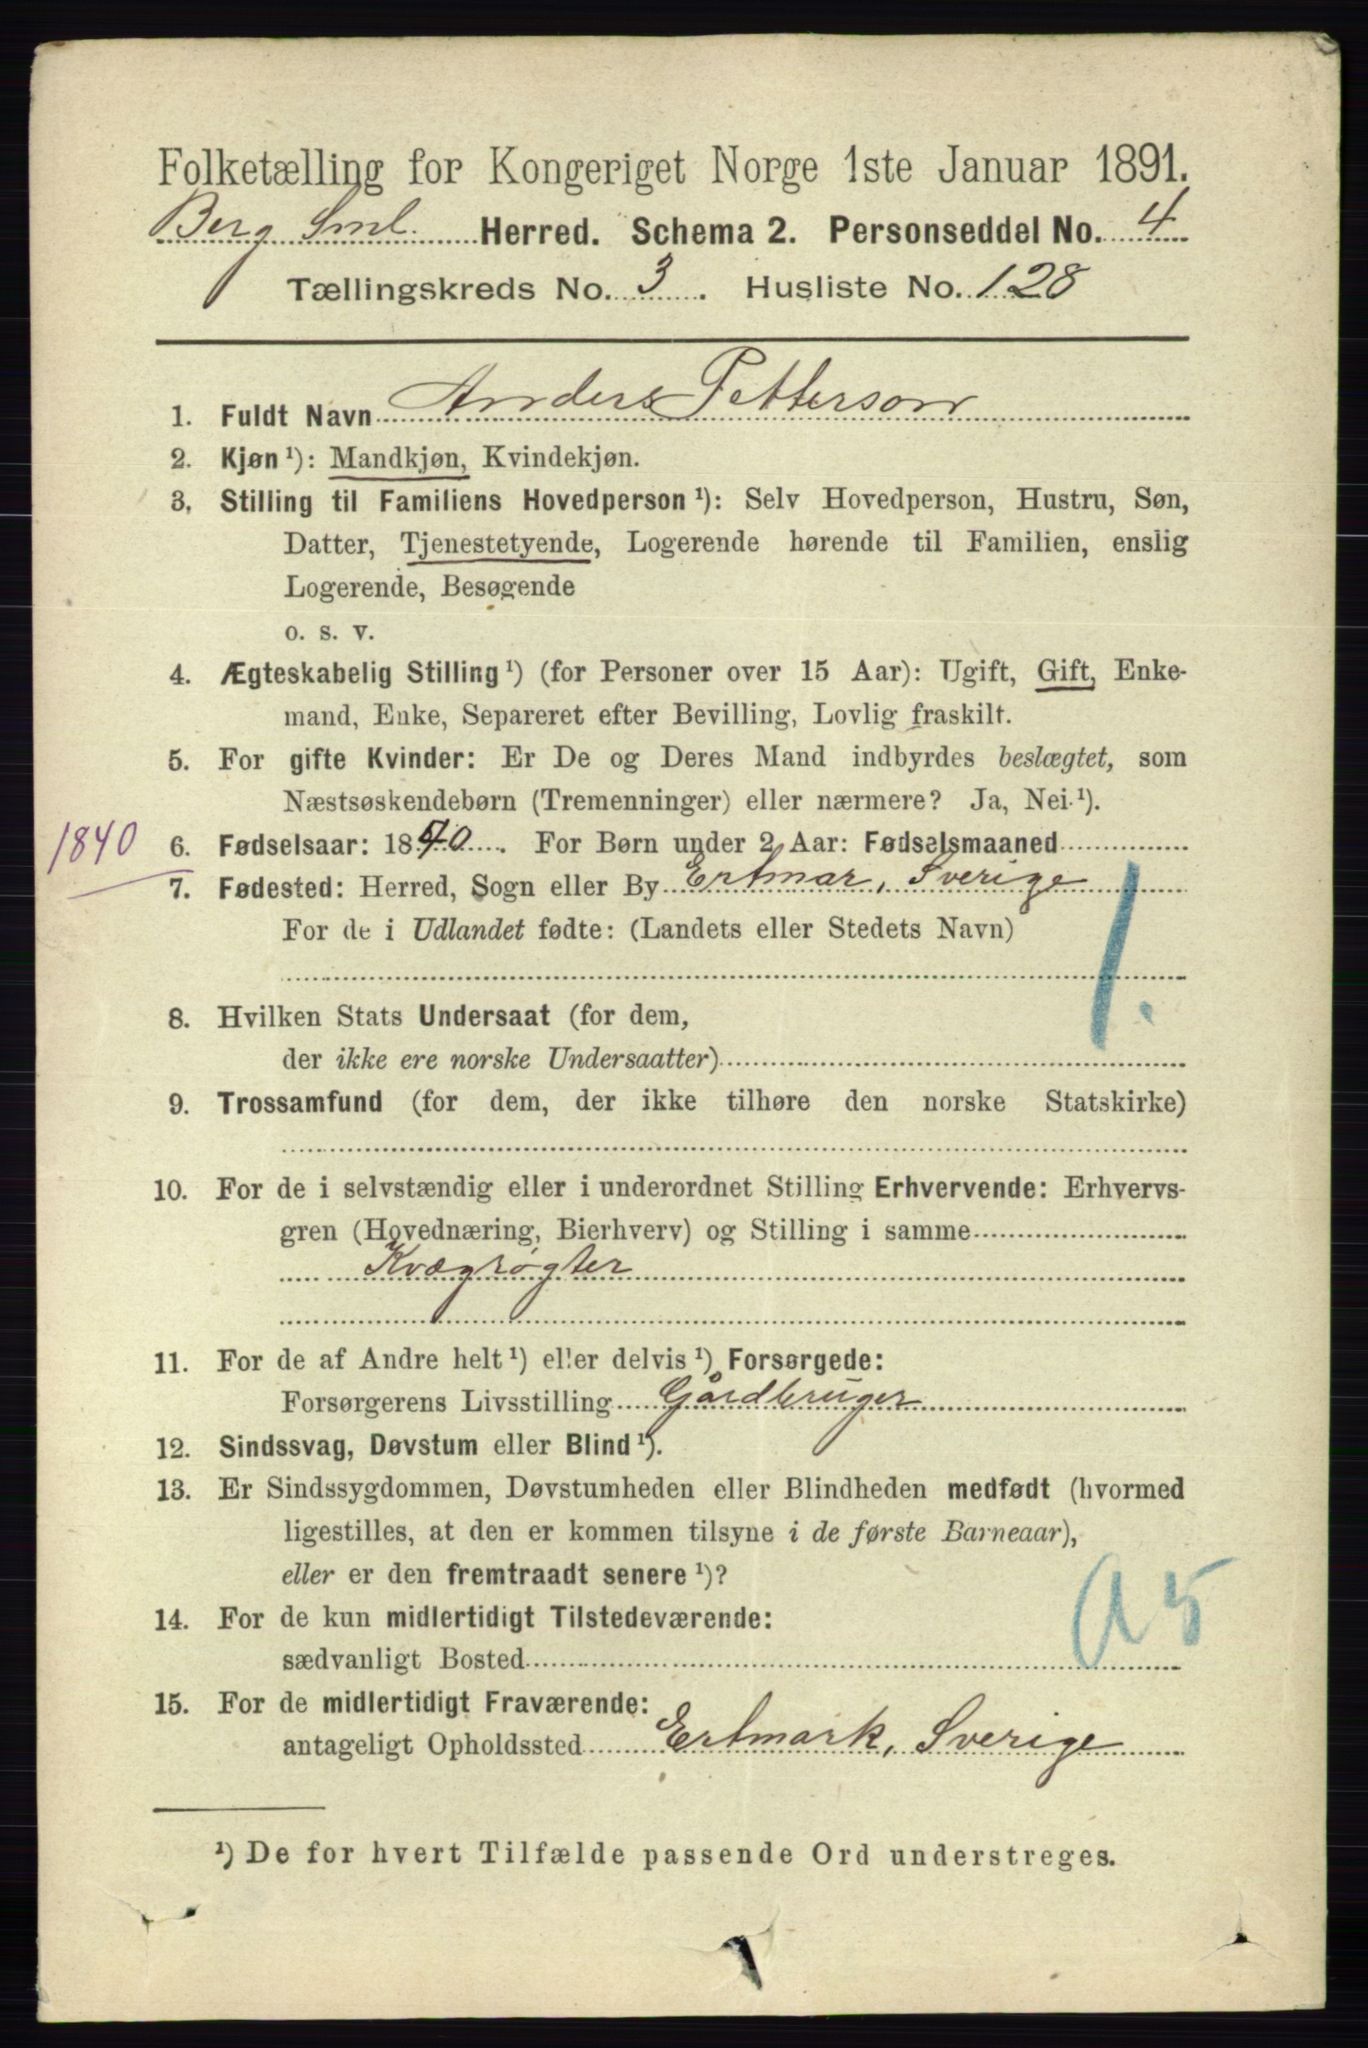 Folketælling for Kongeriget Norge 1ste Januar 1891.
Berg Sml. Herred. Schema 2. Personseddel No. 4
Tællingskreds No. 3. Husliste No. 128
1. Fuldt Navn Anders Petterson
2. Kjøn ¹): Mandkjøn, Kvindekjøn.
3. Stilling til Familiens Hovedperson ¹): Selv Hovedperson, Hustru, Søn,
Datter, Tjenestetyende, Logerende hørende til Familien, enslig
Logerende, Besøgende
o. s. v.
4. Ægteskabelig Stilling ¹) (for Personer over 15 Aar): Ugift, Gift, Enke-
mand, Enke, Separeret efter Bevilling, Lovlig fraskilt.
5. For gifte Kvinder: Er De og Deres Mand indbyrdes beslægtet, som
Næstsøskendebørn (Tremenninger) eller nærmere? Ja, Nei ¹).
1840
6. Fødselsaar: 1840. For Børn under 2 Aar: Fødselsmaaned
7. Fødested: Herred, Sogn eller By Ertmar, Sverige
For de i Udlandet fødte: (Landets eller Stedets Navn)
1.
8. Hvilken Stats Undersaat (for dem,
der ikke ere norske Undersaatter)
9. Trossamfund (for dem, der ikke tilhøre den norske Statskirke)
10. For de i selvstændig eller i underordnet Stilling Erhvervende: Erhvervs-
gren (Hovednæring, Bierhverv) og Stilling i samme
Kvægrøgter
11. For de af Andre helt ¹) eller delvis ¹) Forsørgede:
Forsørgerens Livsstilling Gårdbruger
12. Sindssvag, Døvstum eller Blind ¹).
13. Er Sindssygdommen, Døvstumheden eller Blindheden medfødt (hvormed
ligestilles, at den er kommen tilsyne i de første Barneaar),
eller er den fremtraadt senere ¹)?
14. For de kun midlertidigt Tilstedeværende:
sædvanligt Bosted
a5
15. For de midlertidigt Fraværende:
antageligt Opholdssted Ertmark, Sverige
¹) De for hvert Tilfælde passende Ord understreges.